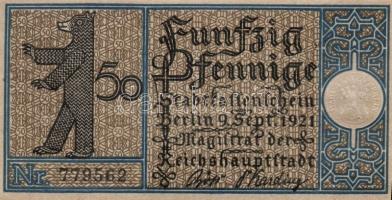 50
Fünfzig
Pfennige
Stadtkassenschein
Berlin 9. Sept. 1921
Magistrat der
Reichshauptstadt
Nr. 779562